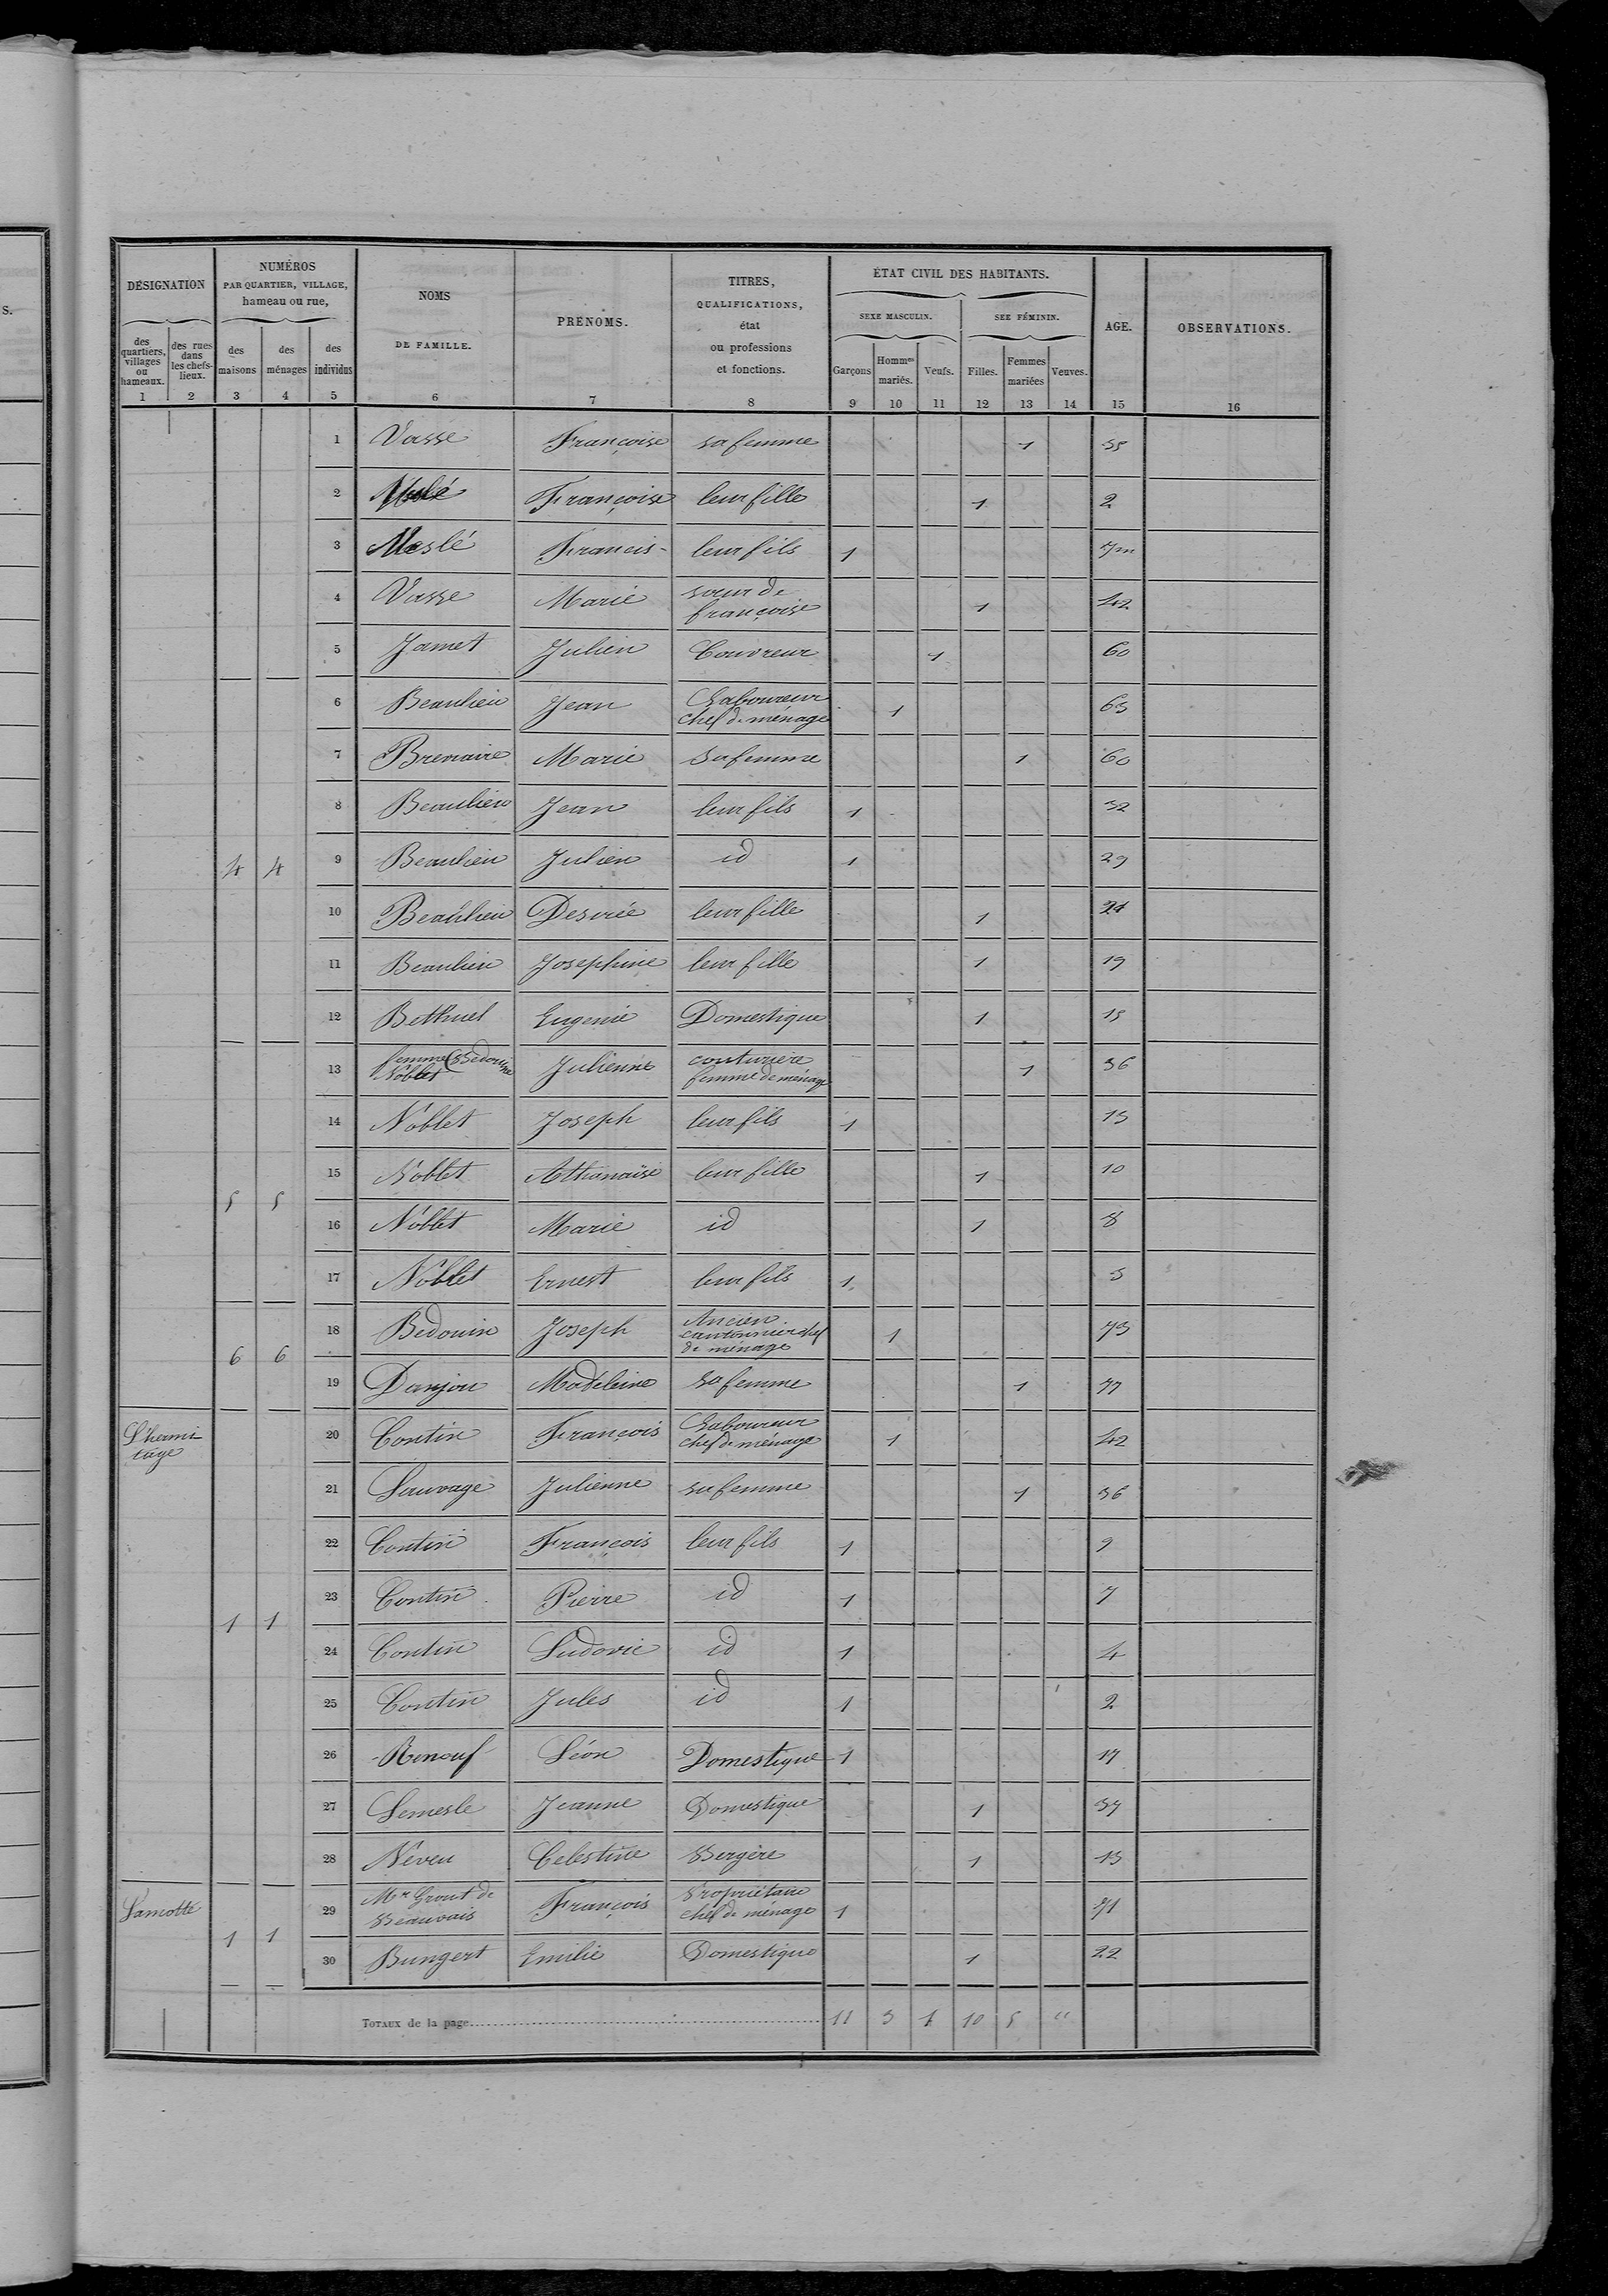 S.
DÉSIGNATION
NUMÉROS
PAR QUARTIER, VILLAGE,
hameau ou rue,
NOMS
DE FAMILLE.
PRÉNOMS.
TITRES,
QUALIFICATIONS,
état
ou professions
et fonctions.
ÉTAT CIVIL DES HABITANTS.
SEXE MASCULIN.
SEE FÉMININ.
AGE.
OBSERVATIONS.
des quartiers, villages ou hameaux.
des rues dans les chefs-lieux.
des maisons
des ménages
des individus
Garçons
Hommes mariés.
Veufs.
Filles.
Femmes mariées
Veuves.
1 2 3 4 5 6 7 8 9 10 11 12 13 14 15 16
1 Vasse Françoise sa femme 1 35
2 Meslé Françoise leur fille 1 2
3 Meslé Francis leur fils 1 7m
4 Vasse Marie sœur de françoise 1 42
5 Jamet Julien Couvreur 1 60
6 Beaulieu Jean Laboureur chef de ménage 1 63
7 Brenaire Marie Sa femme 1 60
8 Beaulieu Jean leur fils 1 32
4 4 9 Beaulieu Julien id 1 29
10 Beaulieu Desirée leur fille 1
11 Beaulieu Josephine leur fille 1 19
12 Bethuel Eugenie Domestique 1 15
13 femme Bedouine Noblet Julienne couturière femme de ménage 1 36
14 Noblet Joseph leur fils 1 13
15 Noblet Athanaïse leur fille 1 10
5 5 16 Noblet Marie id 1 8
17 Noblet Ernest leur fils 1 3
18 Bedouin Joseph Ancien cantonnier chef de ménage 1 73
6 6
19 Danjou Madeleine Sa femme 1 77
L'hermitage 20 Contin François Laboureur chef de ménage 1 42
21 Sauvage Julienne sa femme 1 36
22 Contin François leur fils 1 9
23 Contin Pierre id 1 7
1 1
24 Contin Ludovic id 1 4
25 Contin Jules id 1 2
26 Renouf Léon Domestique 1 17
27 Lemesle Jeanne Domestique 1 37
28 Neveu Celestine Bergère 1 13
Lamotte 29 Mr Grout de Beauvais François Propriétaire chef de ménage 1 71
1 1
30 Bungert Emilie Domestique 1 22
TOTAUX de la page 11 3 1 10 5 "